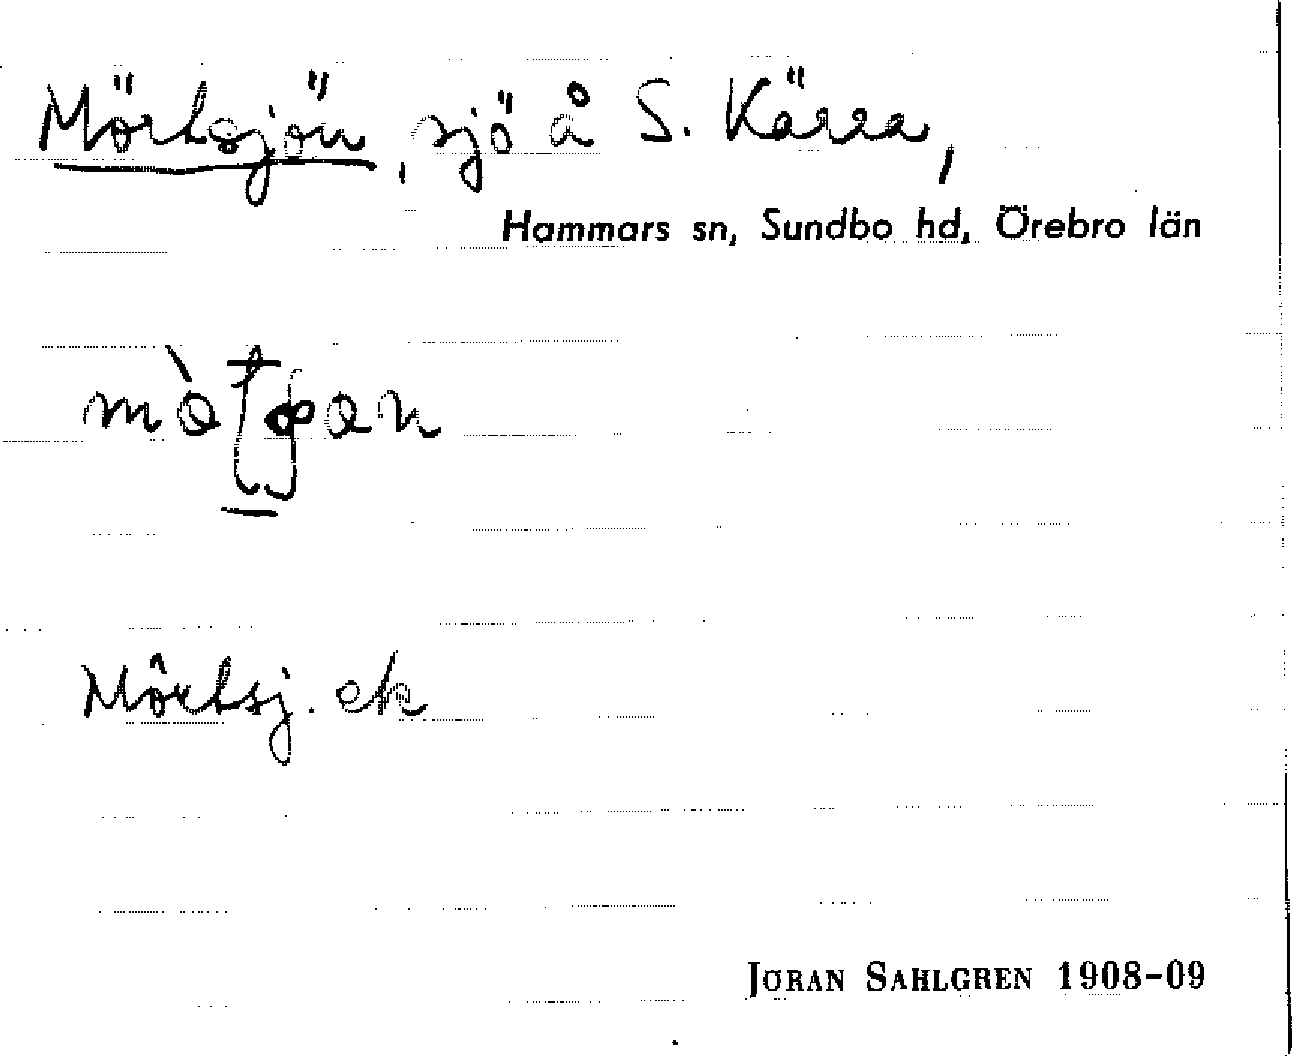 Mörtsjön, sjö å S. Kärra,
Hammars sn, Sundbo hd, Örebro län
Mörtsj. ek
JÖRAN SAHLGREN 1908-09